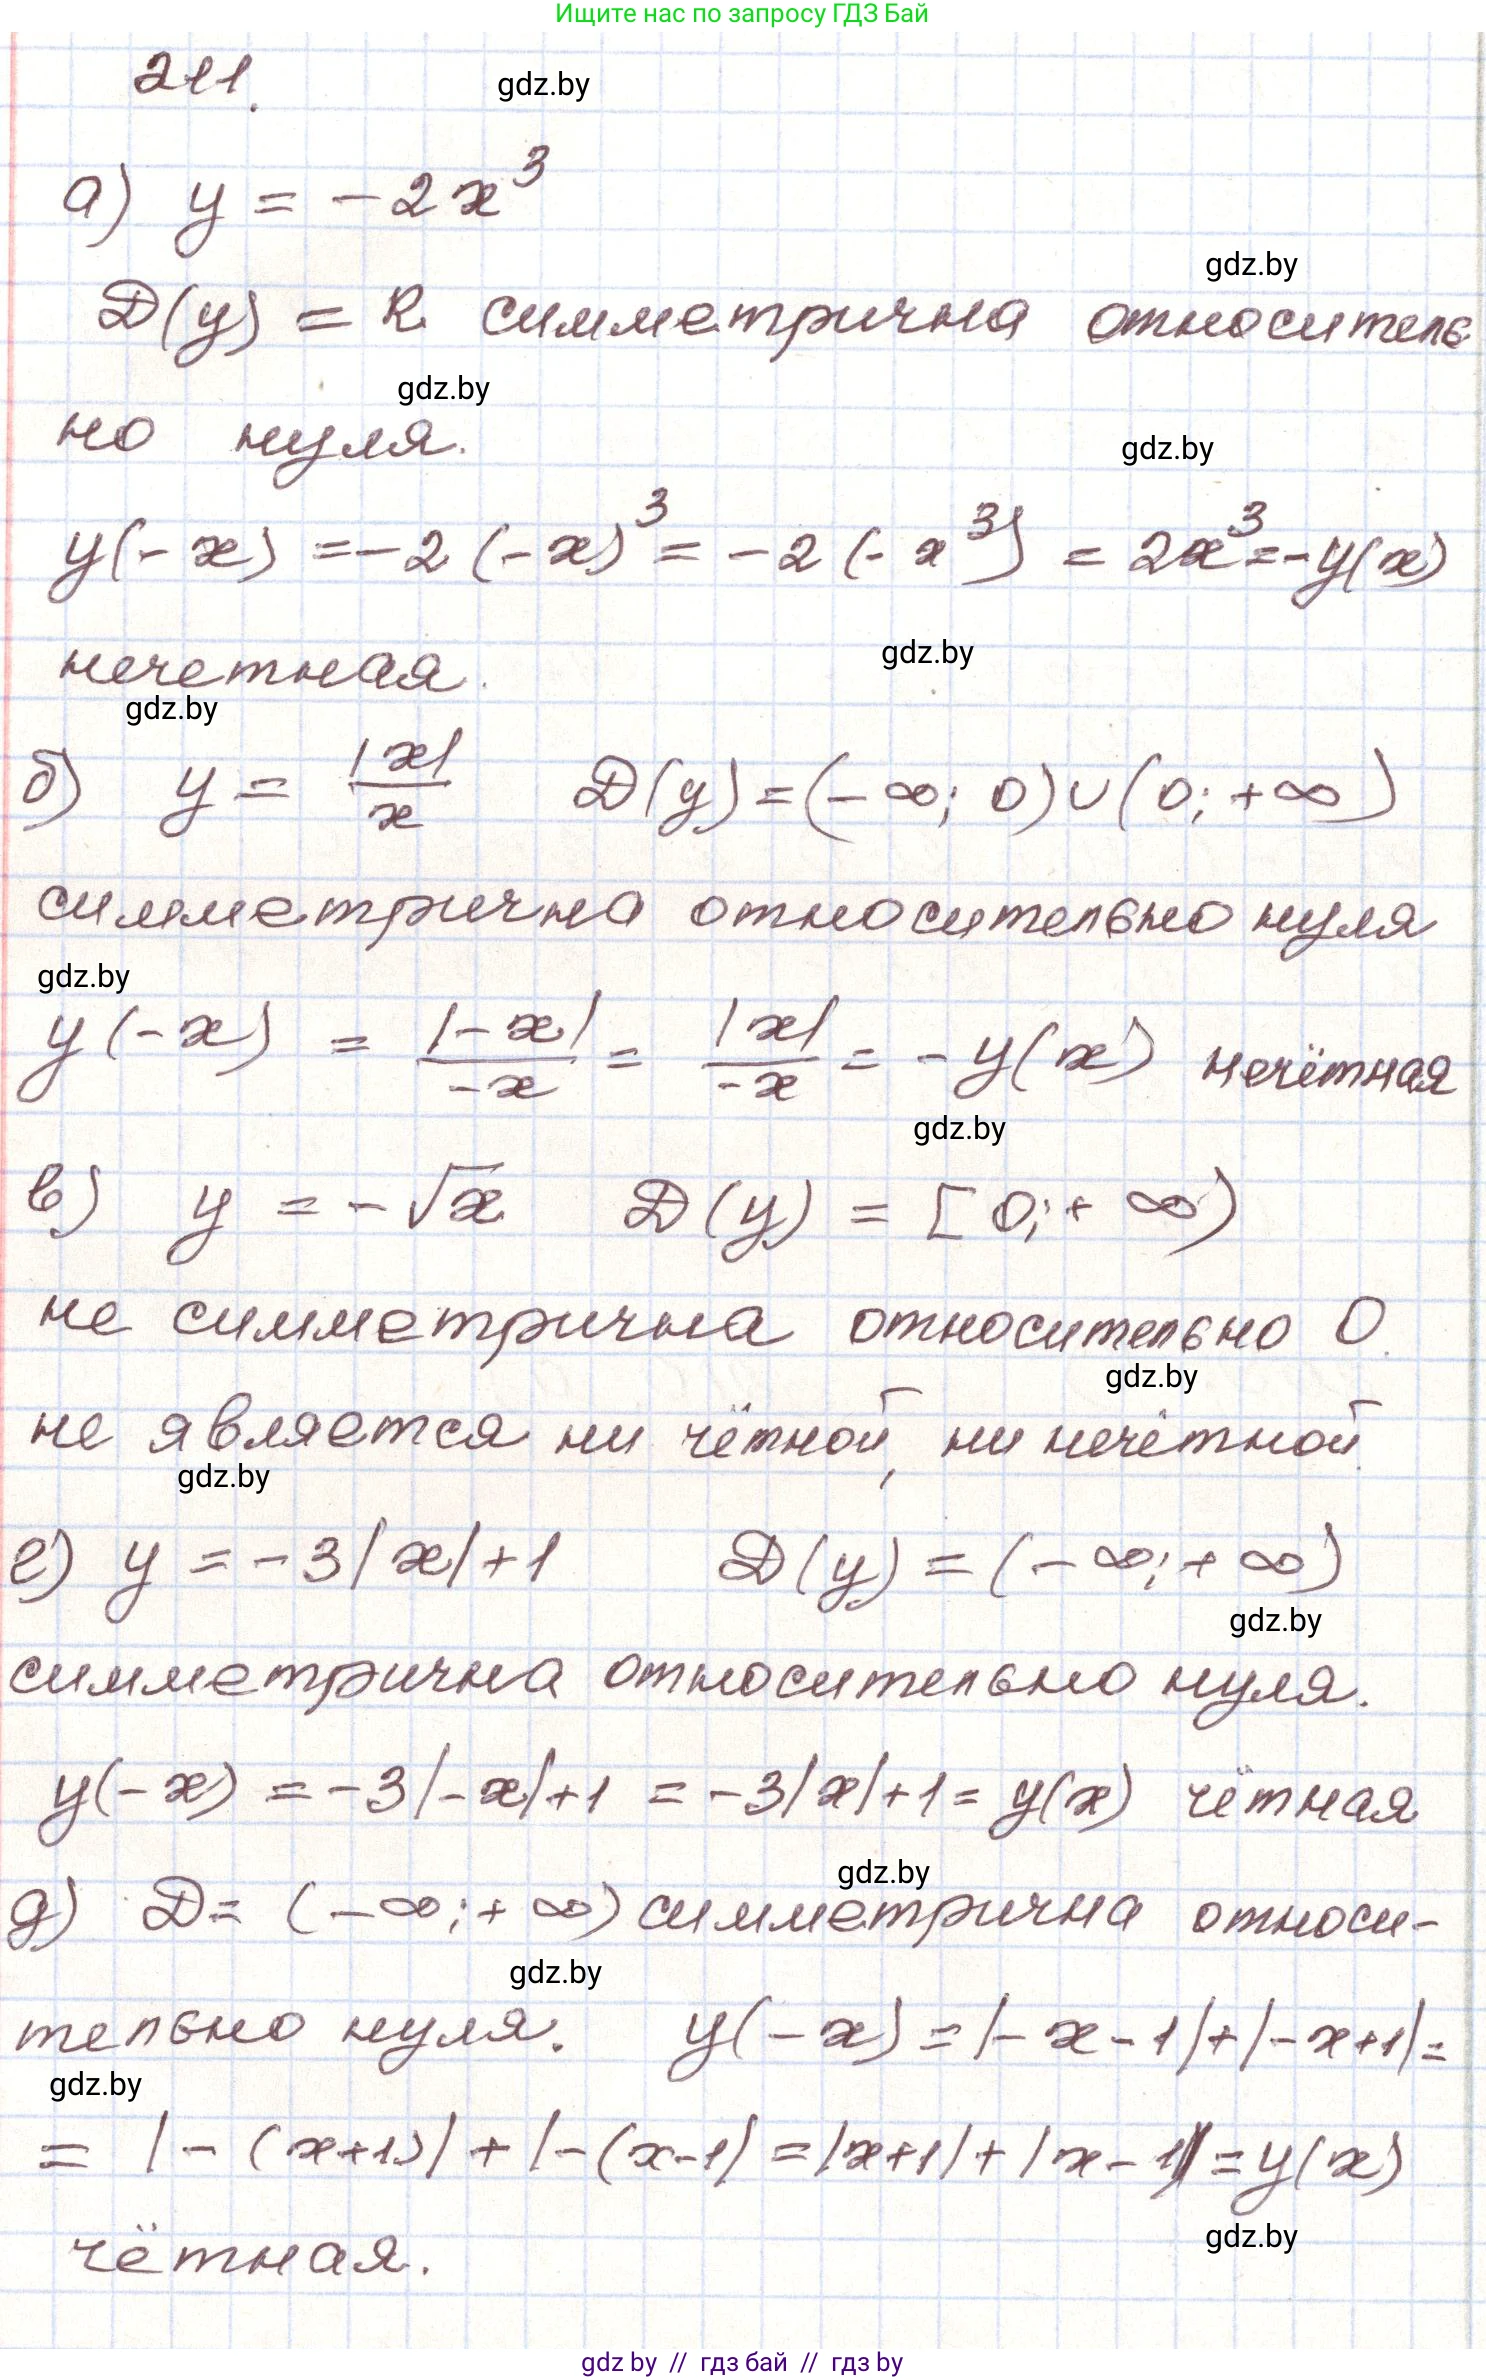 Ищите нас по запросу ГДЗ Бай
211.
gdz.by
а) y = -2x³
gdz.by
D(y) = R симметрична относитель
gdz.by
но нуля.
gdz.by
y(-x) = -2(-x)³ = -2(-x³) = 2x³ = -y(x)
gdz.by
нечетная.
gdz.by
б) y = |x|/x D(y) = (-∞; 0)∪(0; +∞)
симметрична относительно нуля
gdz.by
y(-x) = |-x|/-x = |x|/-x = -y(x) нечётная
gdz.by
в) y = -√x D(y) = [0; +∞)
не симметрична относительно 0.
gdz.by
не является ни чётной, ни нечётной.
gdz.by
г) y = -3|x|+1 D(y) = (-∞; +∞)
gdz.by
симметрична относительно нуля.
y(-x) = -3|-x|+1 = -3|x|+1 = y(x) чётная
gdz.by
д) D = (-∞; +∞) симметрична относи-
gdz.by
тельно нуля. y(-x) = |-x-1|+|-x+1| =
gdz.by
= |-(x+1)|+|-(x-1| = |x+1|+|x-1| = y(x)
gdz.by
чётная.
gdz.by // гдз бай // гдз by